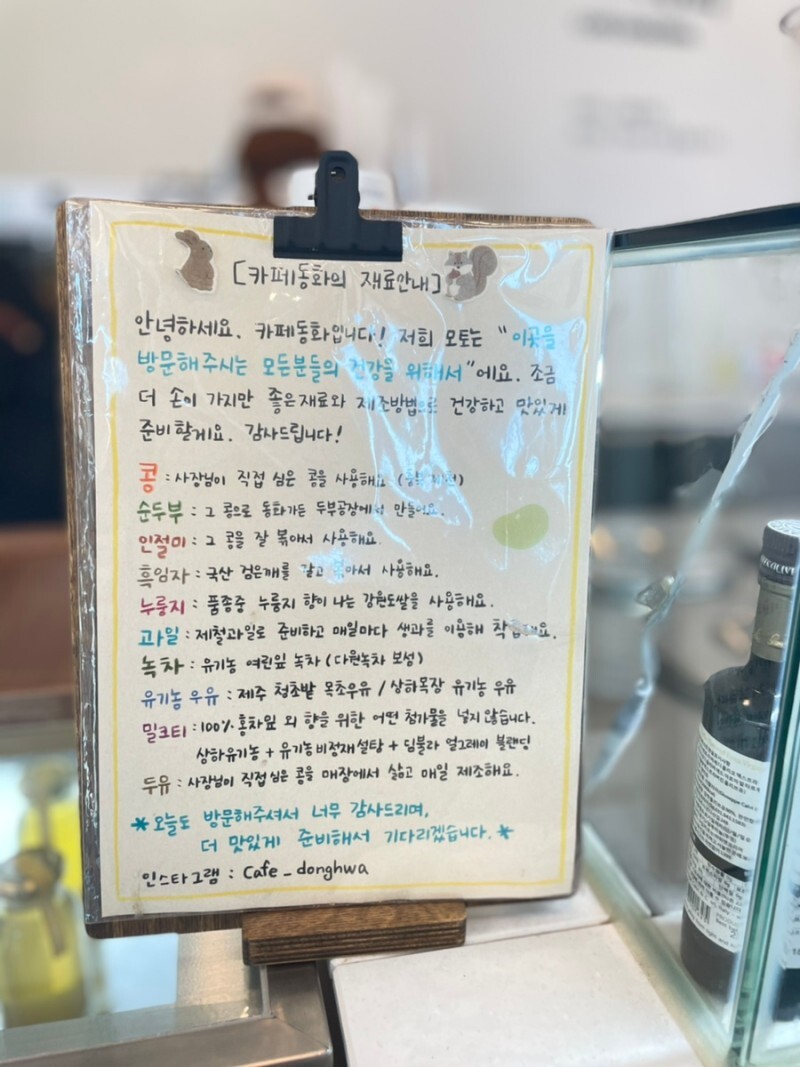 [카페동화의 재료안내]
안녕하세요. 카페동화입니다! 저희 모토는 "이곳을
방문해주시는 모든분들의 건강을 위해서"에요. 조금
더 손이 가지만 좋은재료와 제조방법으로 건강하고 맛있게
준비할게요. 감사드립니다!
콩 : 사장님이 직접 심은 콩을 사용해요
순두부 : 그 콩으로 동화가든 두부공장에서 만들어요.
인절미 : 그 콩을 잘 볶아서 사용해요.
흑임자 : 국산 검은깨를 갈고 볶아서 사용해요.
누룽지 : 품종중 누룽지 향이 나는 강원도쌀을 사용해요.
과일 : 제철과일로 준비하고 매일마다 생과를 이용해 착즙해요.
녹차 : 유기농 여린잎 녹차 (다원녹차 보성)
유기농 우유 : 제주 청초밭 목초우유 / 상하목장 유기농 우유
밀크티 : 100% 홍차잎 외 향을 위한 어떤 첨가물을 넣지 않습니다.
상하유기농 + 유기농비정재설탕 + 딤불라 얼그레이 블랜딩
두유 : 사장님이 직접 심은 콩을 매장에서 삶고 매일 제조해요.
*오늘도 방문해주셔서 너무 감사드리며,
더 맛있게 준비해서 기다리겠습니다.*
인스타그램 : Cafe_donghwa